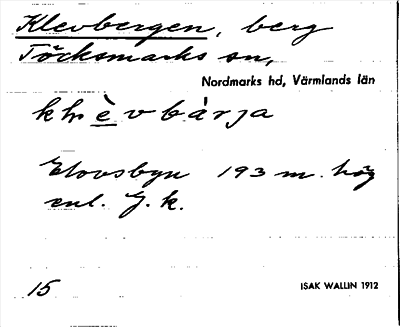 Klevbergen, berg
Töcksmarks sn,
Nordmarks hd, Värmlands län
Elovsbyn 193 m. hög
enl. J. k.
15
ISAK WALLIN 1912